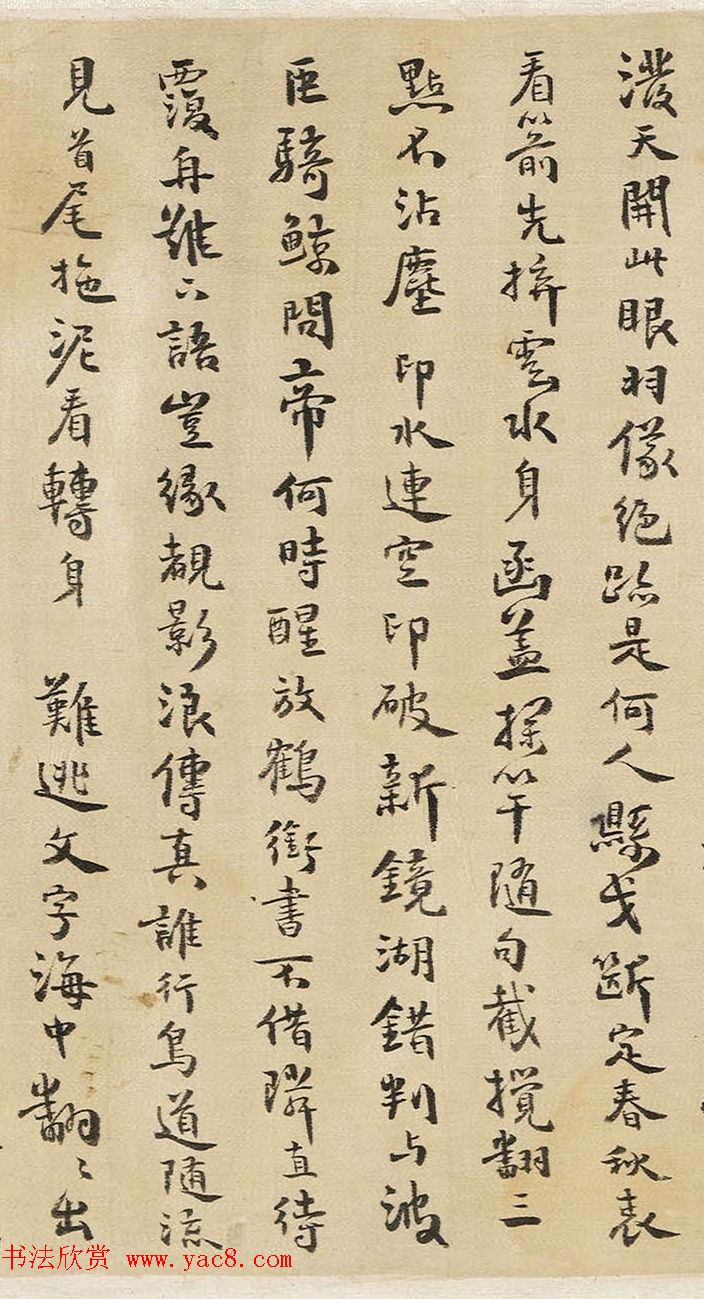 潑天開此眼羽儀絕跡是何人懸戈斷定春秋表
看箭先拚雲水身函蓋探竿隨句截攪翻三
點不沾塵 印水連空印破新鏡湖錯判与波
臣騎鯨問帝何時醒放鶴銜書不借隣直待
覆舟難下語豈緣覩影浪傳真誰行鳥道隨流
見首尾拖泥看轉身 難逃文字海中翻〻出
书法欣赏 www.yac8.com